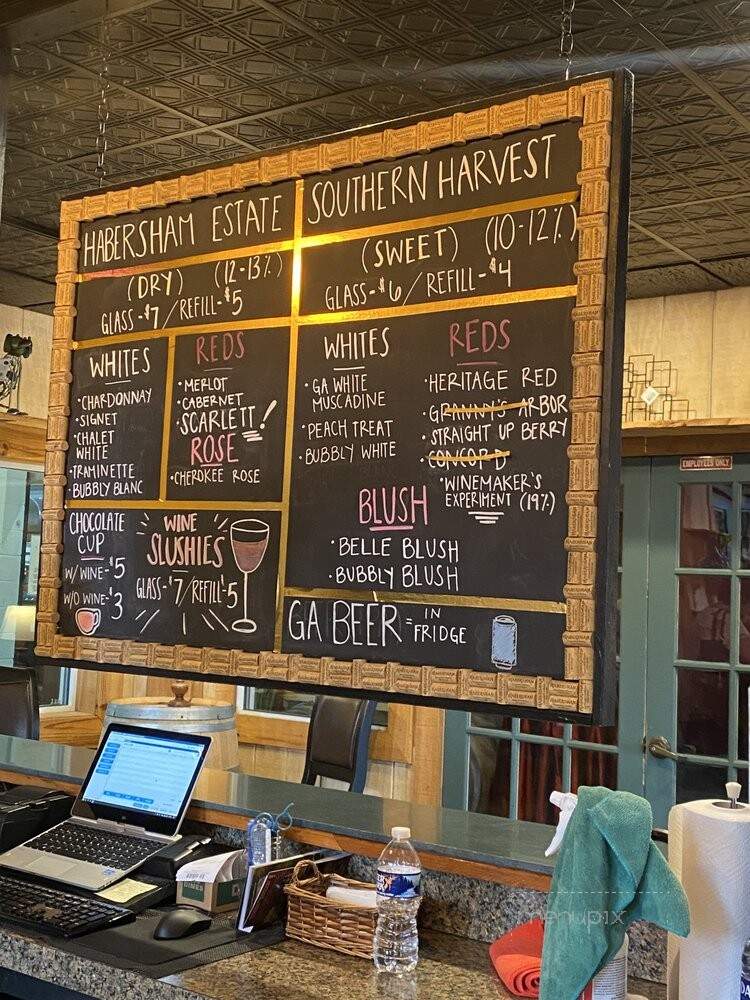 HABERSHAM ESTATE
(DRY) (12-13%)
GLASS-$7/REFILL-$5
WHITES
• CHARDONNAY
• SIGNET
• CHALET
WHITE
• TRAMINETTE
• BUBBLY BLANC
REDS
• MERLOT
• CABERNET
• SCARLETT!
ROSE
• CHEROKEE ROSE
CHOCOLATE
CUP
W/ WINE-$5
W/O WINE-$3
WINE
SLUSHIES
GLASS-$7/REFILL-$5
SOUTHERN HARVEST
(SWEET) (10-12%)
GLASS-$6/REFILL-$4
WHITES
• GA WHITE
MUSCADINE
• PEACH TREAT
• BUBBLY WHITE
REDS
• HERITAGE RED
• GRANNY'S ARBOR
• STRAIGHT UP BERRY
• CONCORD
• WINEMAKER'S
EXPERIMENT (19%)
BLUSH
• BELLE BLUSH
• BUBBLY BLUSH
GA BEER = IN
FRIDGE
EMPLOYEES ONLY
menupix